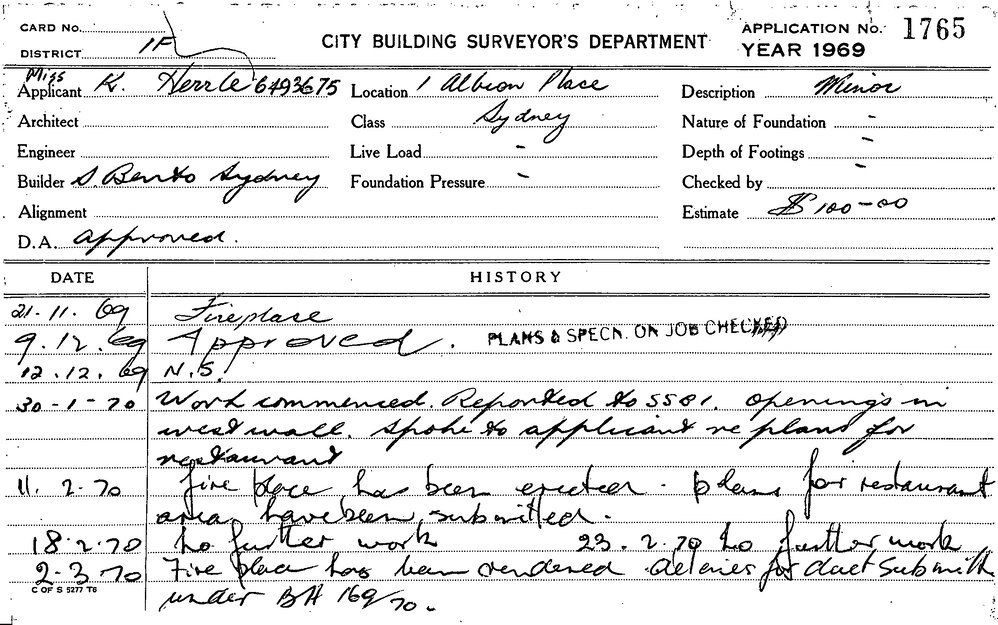 CARD No.
DISTRICT 1F
CITY BUILDING SURVEYOR'S DEPARTMENT
APPLICATION No. 1765
YEAR 1969
Miss
Applicant K. Herrle 6493675 Location 1 Albion Place Description Minor
Architect Class Sydney Nature of Foundation -
Engineer Live Load - Depth of Footings -
Builder S. Bento Sydney Foundation Pressure - Checked by -
Alignment Estimate $100-00
D.A. approved.
DATE HISTORY
21.11.69 Fireplace
9.12.69 Approved. PLANS & SPECN. ON JOB CHECKED
12.12.69 N.S.
30-1-70 Work commenced. Reported to SSBI. openings in
west wall. Spoke to applicant re plans for
restaurant
11.2.70 fire place has been erected. plans for restaurant
area have been submitted.
18.2.70 no further work 23.2.70 no further work
2.3.70 Fire place has been rendered. for duct submitt
under BA 169/70.
C OF S 5277 T6